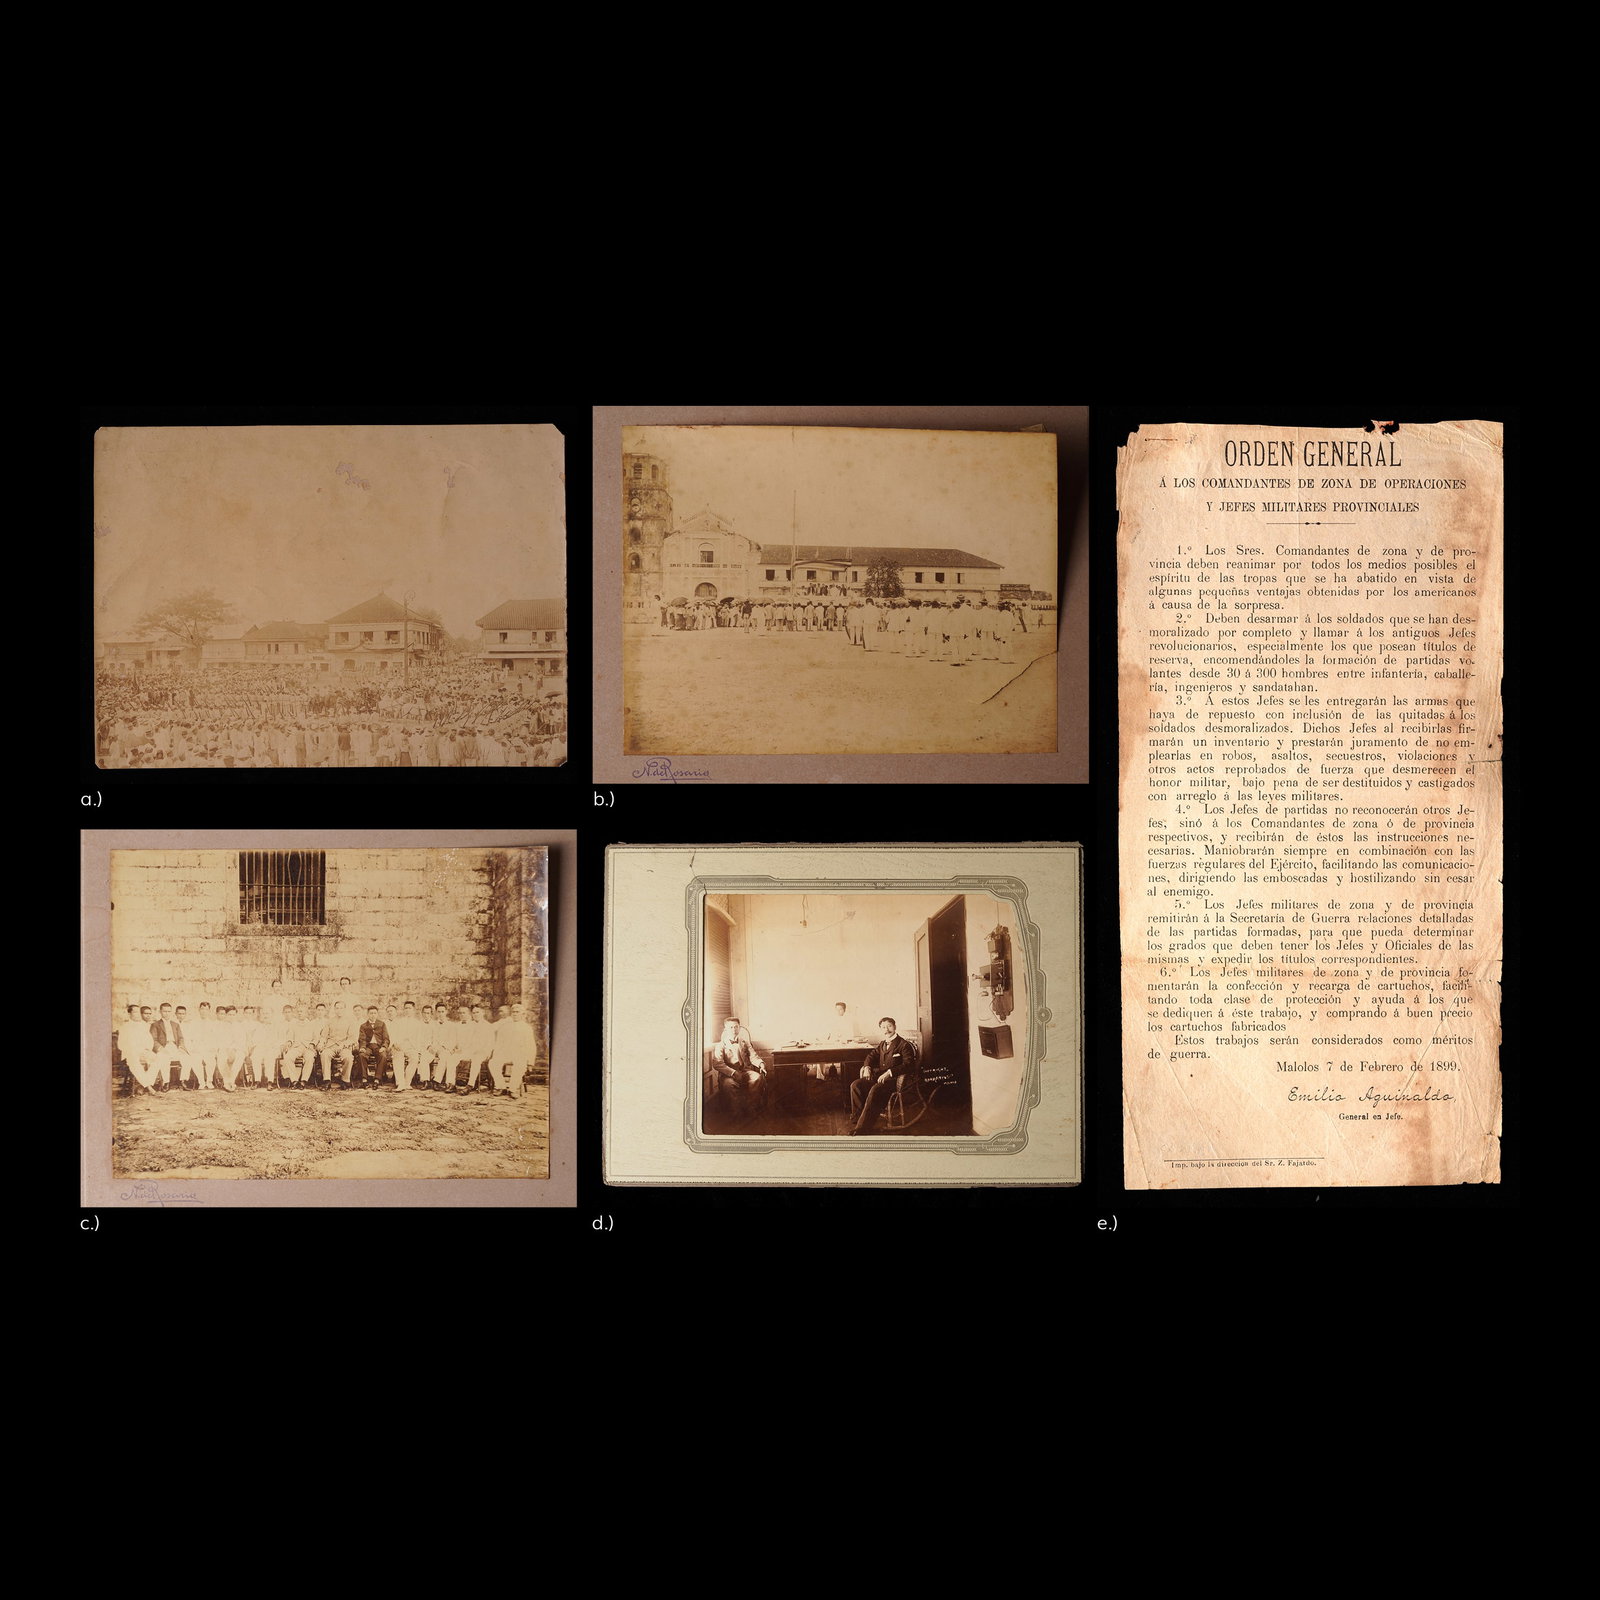 a.)
N. del Rosario
b.)
N. del Rosario
c.)
d.)
ORDEN GENERAL
Á LOS COMANDANTES DE ZONA DE OPERACIONES
Y JEFES MILITARES PROVINCIALES
1.º Los Sres. Comandantes de zona y de pro-
vincia deben reanimar por todos los medios posibles el
espíritu de las tropas que se ha abatido en vista de
algunas pequeñas ventajas obtenidas por los americanos
á causa de la sorpresa.
2.º Deben desarmar á los soldados que se han des-
moralizado por completo y llamar á los antiguos Jefes
revolucionarios, especialmente los que posean títulos de
reserva, encomendándoles la formación de partidas vo-
lantes desde 30 á 300 hombres entre infantería, caballe-
ría, ingenieros y sandatahan.
3.º Á estos Jefes se les entregarán las armas que
haya de repuesto con inclusión de las quitadas á los
soldados desmoralizados. Dichos Jefes al recibirlas fir-
marán un inventario y prestarán juramento de no em-
plearlas en robos, asaltos, secuestros, violaciones y
otros actos reprobados de fuerza que desmerecen el
honor militar, bajo pena de ser destituidos y castigados
con arreglo á las leyes militares.
4.º Los Jefes de partidas no reconocerán otros Je-
fes, sinó á los Comandantes de zona ó de provincia
respectivos, y recibirán de éstos las instrucciones ne-
cesarias. Maniobrarán siempre en combinación con las
fuerzas regulares del Ejército, facilitando las comunicacio-
nes, dirigiendo las emboscadas y hostilizando sin cesar
al enemigo.
5.º Los Jefes militares de zona y de provincia
remitirán á la Secretaría de Guerra relaciones detalladas
de las partidas formadas, para que pueda determinar
los grados que deben tener los Jefes y Oficiales de las
mismas y expedir los títulos correspondientes.
6.º Los Jefes militares de zona y de provincia fo-
mentarán la confección y recarga de cartuchos, facili-
tando toda clase de protección y ayuda á los que
se dediquen á éste trabajo, y comprando á buen precio
los cartuchos fabricados
Estos trabajos serán considerados como méritos
de guerra.
Malolos 7 de Febrero de 1899.
Emilio Aguinaldo,
General en Jefe.
Imp. bajo la direccion del Sr. Z. Fajardo.
e.)